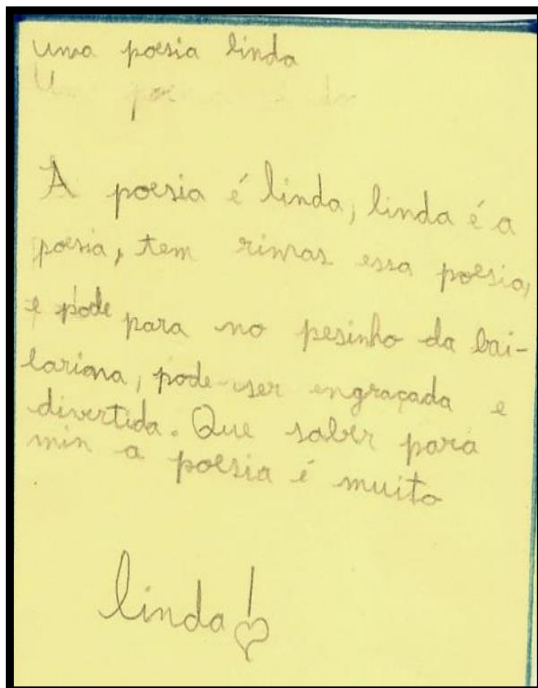 uma poesia linda
U
A poesia é linda, linda é a
poesia, tem rimas essa poesia,
e pode para no pesinho da bai-
lariana, pode ser engraçada e
divertida. Que saber para
min a poesia é muito
linda!